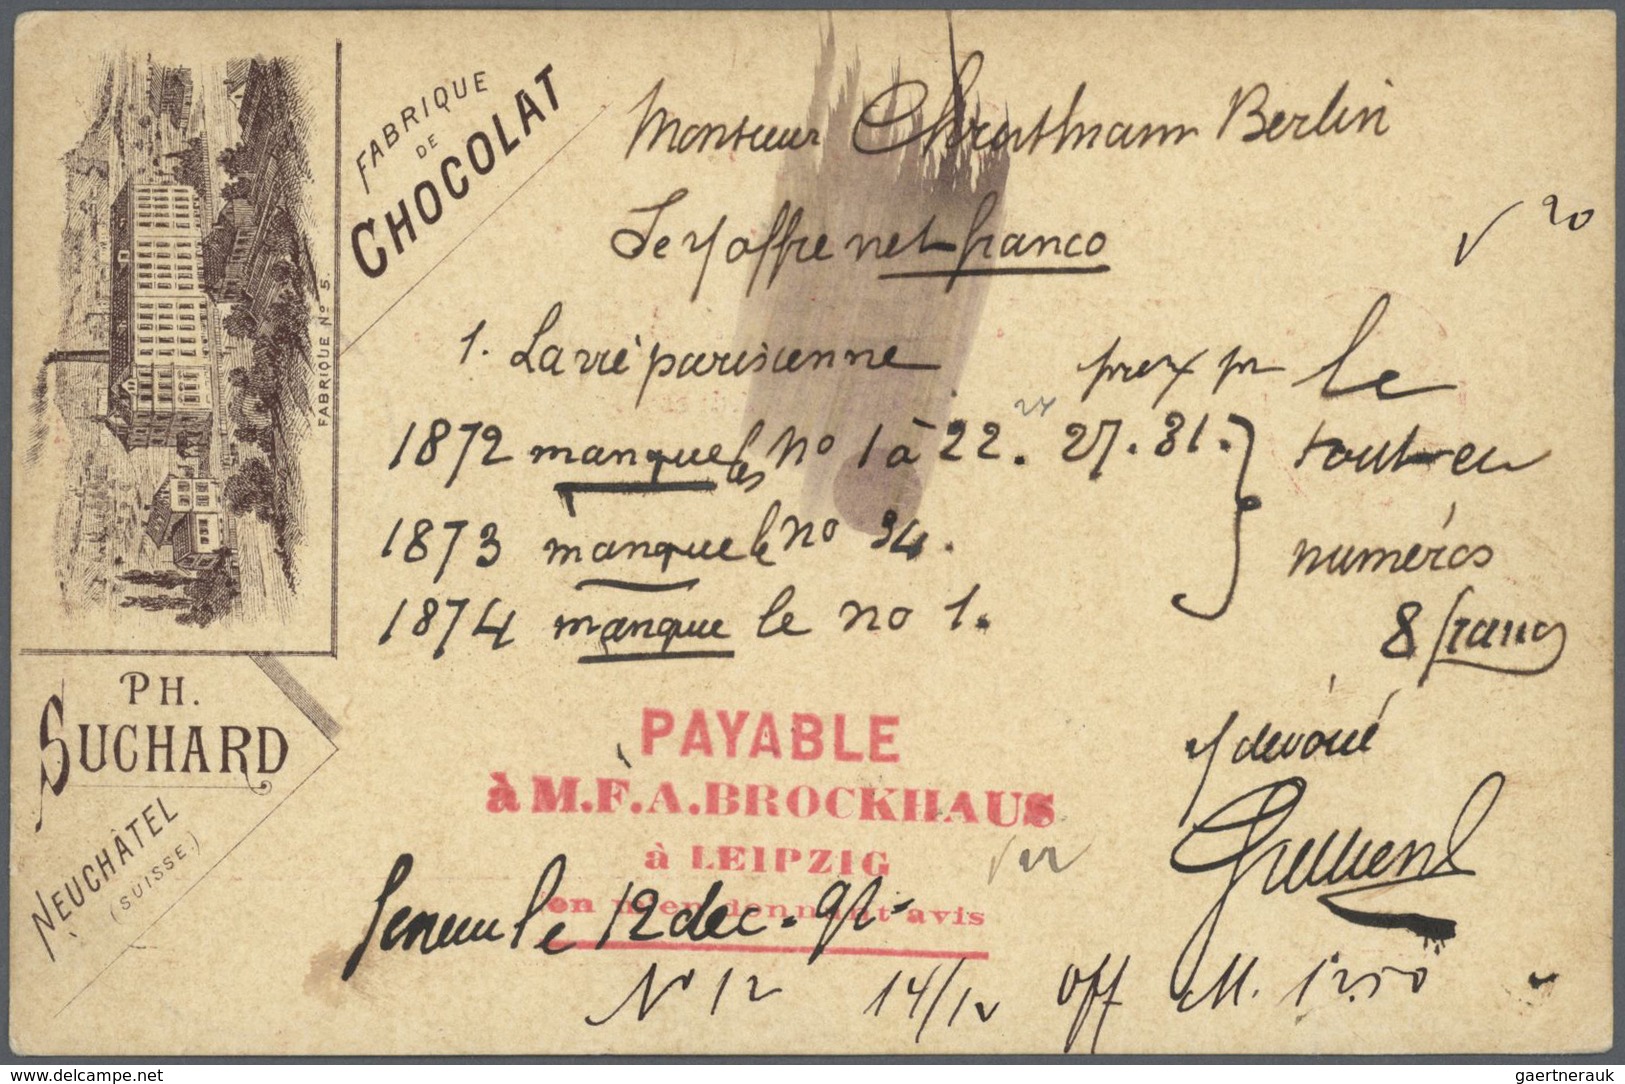 FABRIQUE
DE
CHOCOLAT
FABRIQUE Nº 5.
PH.
SUCHARD
NEUCHÂTEL
(SUISSE.)
Monsieur Berlin
Je v offre net franco
√ 20
1. La vie parisienne prix pr le
1872 manque les no 1 à 22. 27. 31. } tout en
1873 manque le no 34. numéros
1874 manque le no 1. 8 francs
v devoué
PAYABLE
à M. F. A. BROCKHAUS
à LEIPZIG
en m'en donnant avis
le 12 dec. 92
No 12 14/12 Off M. 12.50
www.delcampe.net
gaertnerauk